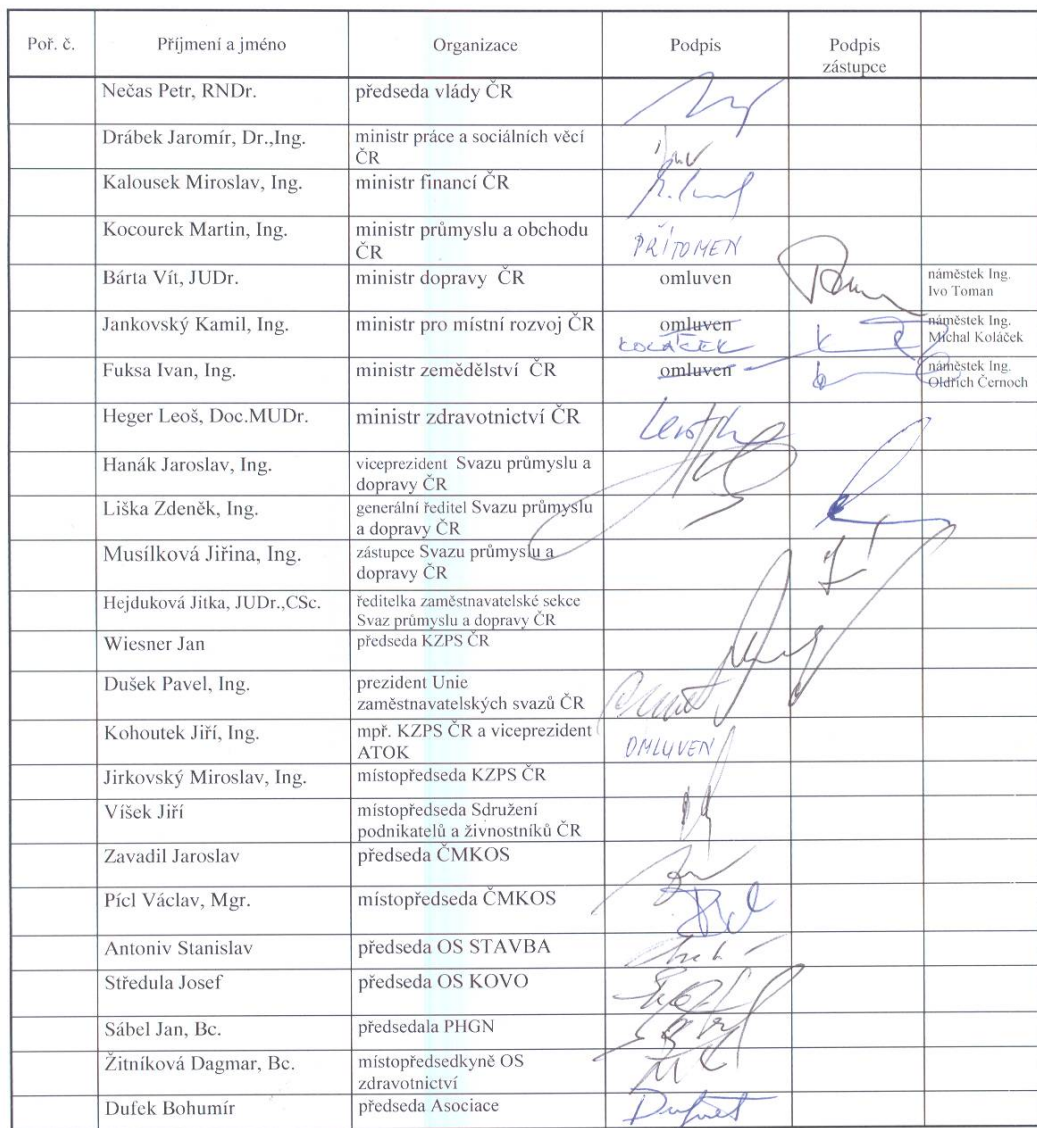 Poř. č. Příjmení a jméno Organizace Podpis Podpis
zástupce
Nečas Petr, RNDr. předseda vlády ČR
Drábek Jaromír, Dr.,Ing. ministr práce a sociálních věcí
ČR
Kalousek Miroslav, Ing. ministr financí ČR
Kocourek Martin, Ing. ministr průmyslu a obchodu
ČR PŘÍTOMEN
Bárta Vít, JUDr. ministr dopravy ČR omluven náměstek Ing.
Ivo Toman
Jankovský Kamil, Ing. ministr pro místní rozvoj ČR omluven náměstek Ing.
KOLÁČEK Michal Koláček
Fuksa Ivan, Ing. ministr zemědělství ČR omluven náměstek Ing.
Oldřich Černoch
Heger Leoš, Doc.MUDr. ministr zdravotnictví ČR
Hanák Jaroslav, Ing. viceprezident Svazu průmyslu a
dopravy ČR
Liška Zdeněk, Ing. generální ředitel Svazu průmyslu
a dopravy ČR
Musílková Jiřina, Ing. zástupce Svazu průmyslu a
dopravy ČR
Hejduková Jitka, JUDr.,CSc. ředitelka zaměstnavatelské sekce
Svaz průmyslu a dopravy ČR
Wiesner Jan předseda KZPS ČR
Dušek Pavel, Ing. prezident Unie
zaměstnavatelských svazů ČR
Kohoutek Jiří, Ing. mpř. KZPS ČR a viceprezident
ATOK OMLUVEN
Jirkovský Miroslav, Ing. místopředseda KZPS ČR
Víšek Jiří místopředseda Sdružení
podnikatelů a živnostníků ČR
Zavadil Jaroslav předseda ČMKOS
Pícl Václav, Mgr. místopředseda ČMKOS
Antoniv Stanislav předseda OS STAVBA
Středula Josef předseda OS KOVO
Sábel Jan, Bc. předsedala PHGN
Žitníková Dagmar, Bc. místopředsedkyně OS
zdravotnictví
Dufek Bohumír předseda Asociace